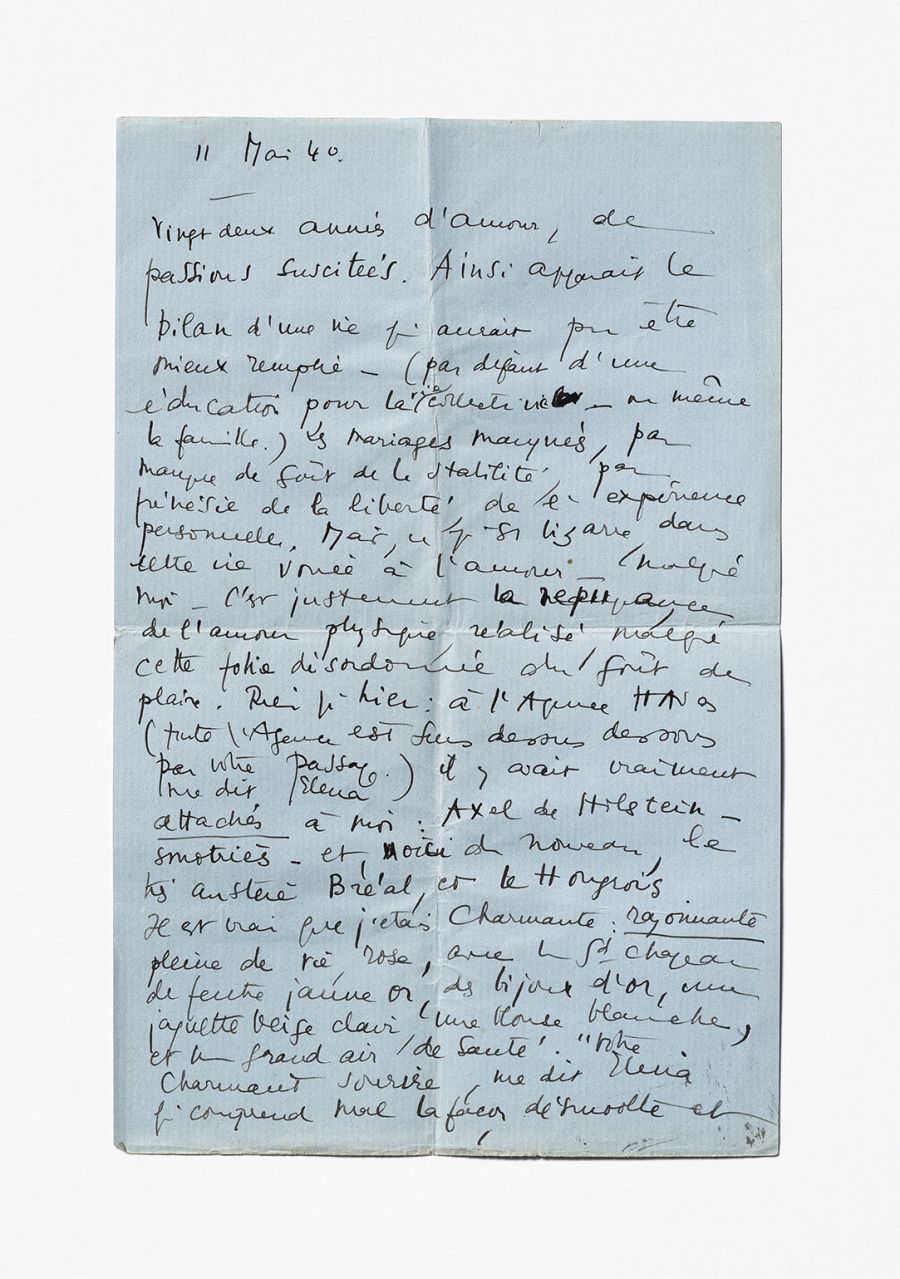 11 Mai 40.
Vingt deux années d'amour, de
passions suscitées. Ainsi apparait le
bilan d'une vie qui aurait pu être
mieux remplie – (par défaut d'une
éducation pour la vie collective – ou même
la famille.) Les mariages manqués, par
manque de goût de la stabilité, par
frénésie de la liberté de l'expérience
personnelle. Mais, ce qui est bizarre dans
cette vie vouée à l'amour – malgré
moi – C'est justement la répugnance
de l'amour physique réalisé malgré
cette folie désordonnée du goût de
plaire. Rien qu'hier : à l'Agence HAvas
(toute l'Agence est sens dessus dessous
par votre passage
me dit Elena) il y avait vraiment
attachés à moi : Axel de Holstein –
– et, voici du nouveau, le
très austère Bréal, et le Hongrois
Il est vrai que j'étais Charmante : rayonnante
pleine de vie, rose, avec un gd chapeau
de feutre jaune or, des bijoux d'or, une
jaquette beige clair, une blouse blanche,
et un grand air de santé. "Votre
Charmant sourire, me dit Elena
qui comprend mal la façon désinvolte et